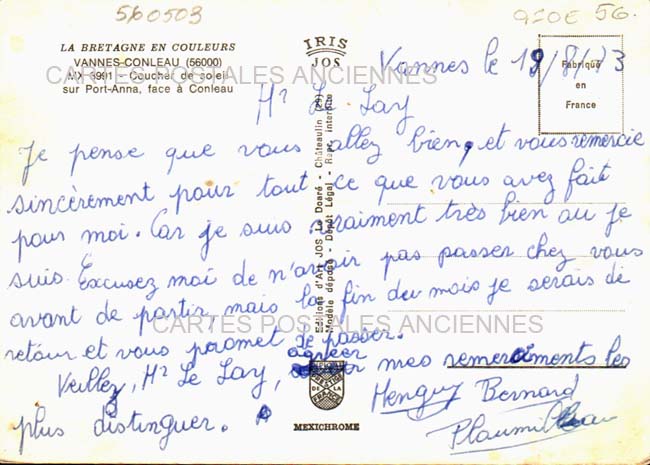 560503
920E 56.
LA BRETAGNE EN COULEURS
VANNES-CONLEAU (56000)
MX 3991 - Coucher de soleil
sur Port-Anna, face à Conleau
IRIS
JOS
Fabriqué
en
France
CARTES POSTALES ANCIENNES
Vannes le 19/8/73
Mr Le Lay
Je pense que vous allez bien, et vous remercie
sincèrement pour tout ce que vous avez fait
pour moi. Car je suis vraiment très bien au je
suis. Excusez moi de n'avoir pas passer chez vous
avant de partir, mais la fin du mois je serais de
retour et vous promet de passer.
Veillez, Mr Le Lay, agréer mes remerciments les
plus distinguer.
Henguy Bernard
Editions d'Art JOS Le Doaré - Châteaulin
Modèle déposé - Dépôt Légal - Repr. interdite
CARTES POSTALES ANCIENNES
MEXICHROME